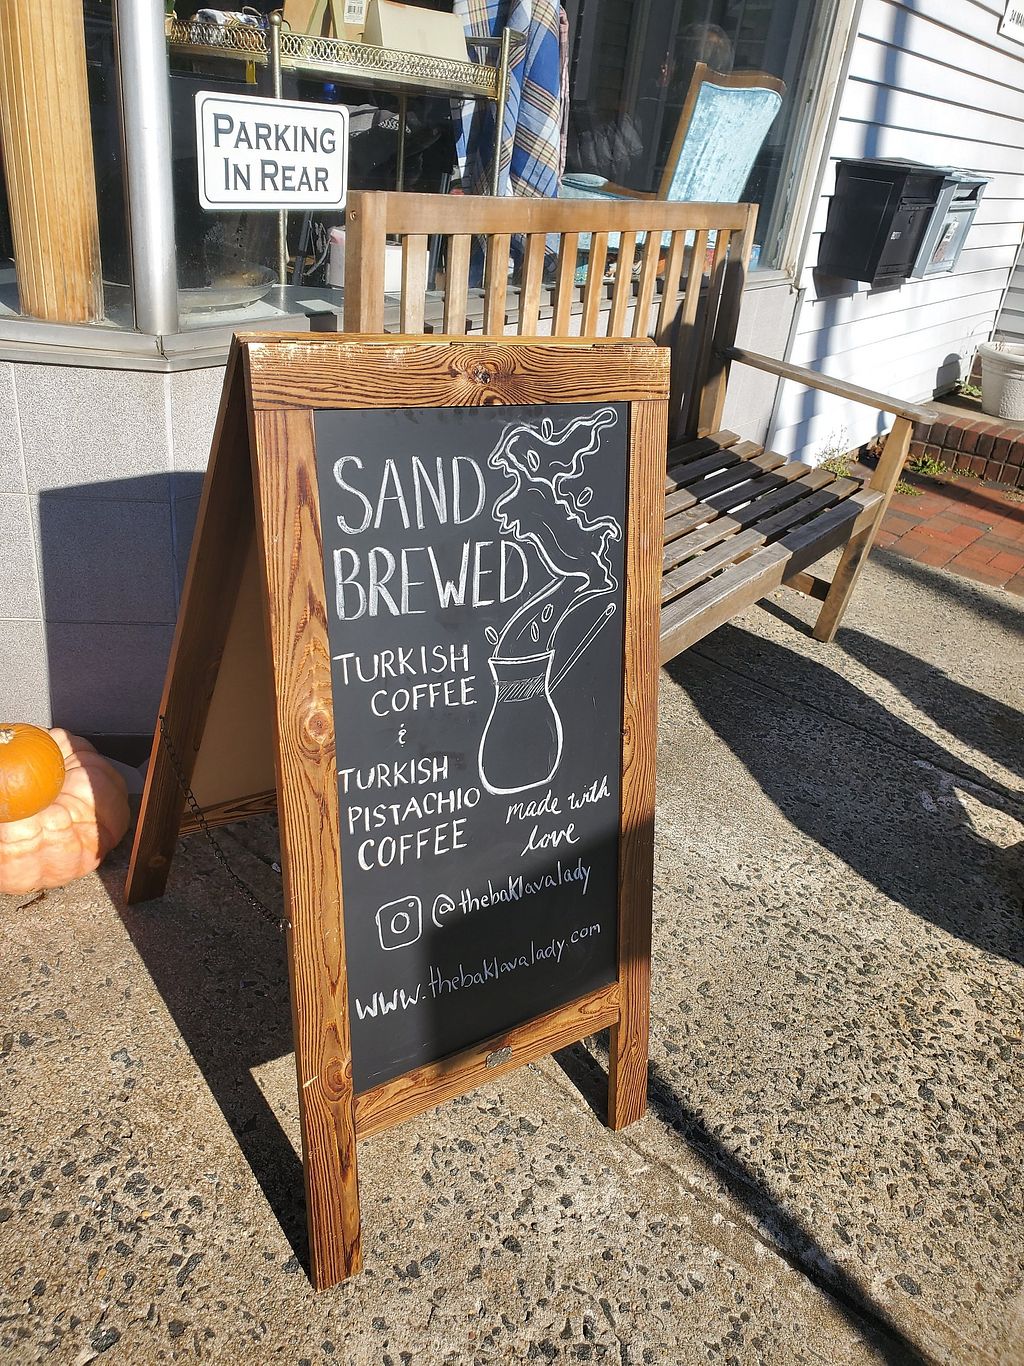 PARKING
IN REAR
SAND
BREWED
TURKISH
COFFEE
&
TURKISH
PISTACHIO
COFFEE
made with
love
@thebaklavalady
www.thebaklavalady.com